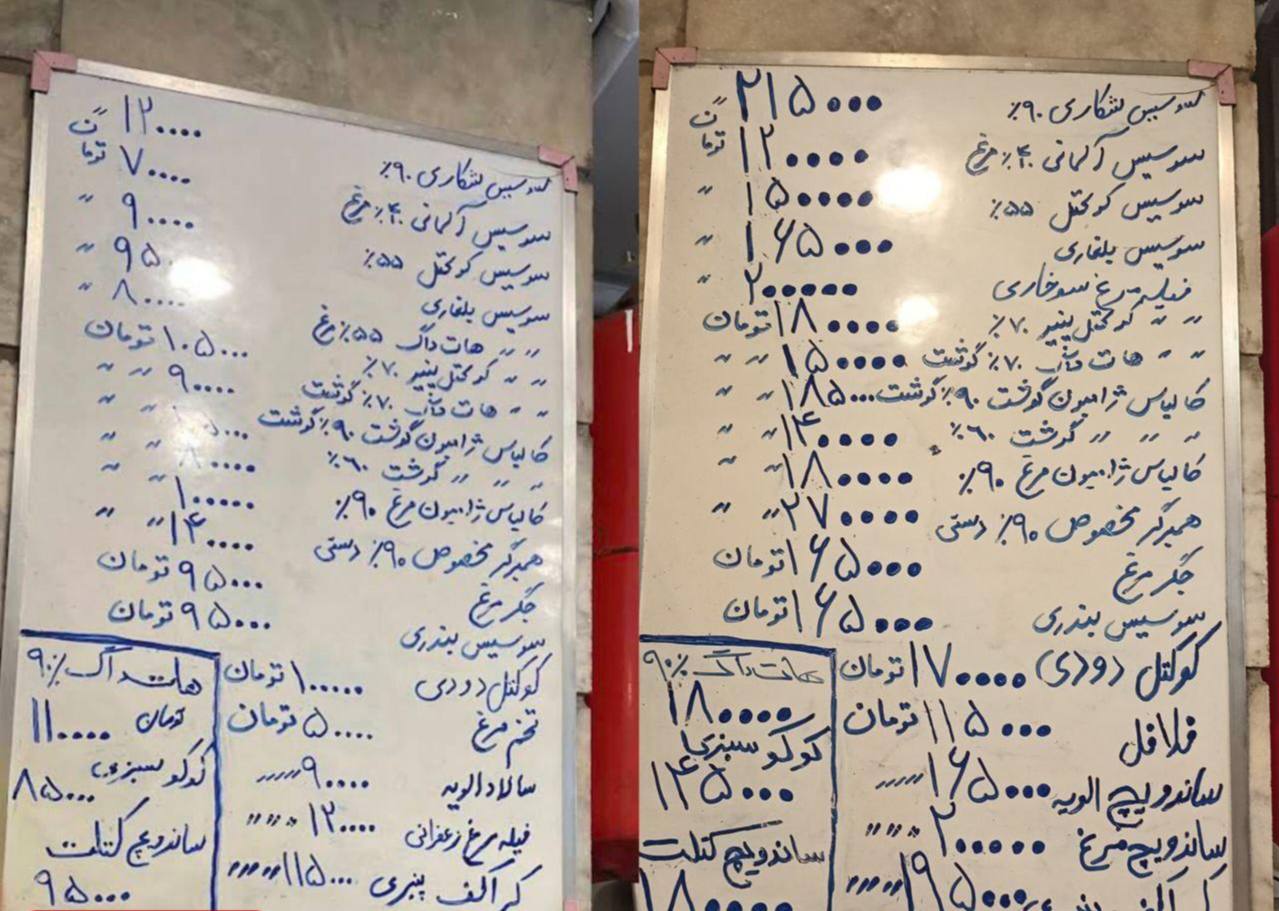 سوسیس شکاری ۹۰٪ ۱۲۰۰۰۰ تومان
سوسیس آلمانی ۴۰٪ مرغ ۷۰۰۰۰ "
سوسیس کوکتل ۵۵٪ ۹۰۰۰۰ "
سوسیس بلغاری ۹۵ "
" " هات داگ ۵۵٪ مرغ ۸۰۰۰۰ "
" " کوکتل پنیر ۷۰٪ ۱۰۵۰۰۰ تومان
" " هات داگ ۷۰٪ گوشت ۹۰۰۰۰ " "
کالباس ژامبون گوشت ۹۰٪ گوشت
" " " گوشت ۶۰٪ ۸۰۰۰۰ " "
کالباس ژامبون مرغ ۹۰٪ ۱۰۰۰۰۰ "
همبرگر مخصوص ۹۰٪ دستی ۱۴۰۰۰۰ " "
جگر مرغ ۹۵۰۰۰ تومان
سوسیس بندری ۹۵۰۰۰ تومان
کوکتل دودی ۱۰۰۰۰۰ تومان
تخم مرغ ۵۰۰۰۰ تومان
سالاد الویه ۹۰۰۰۰ """"
فیله مرغ زعفرانی ۱۲۰۰۰۰ """"
پنیری ۱۱۵۰۰۰ """"
هات داگ ۹۰٪
۱۱۰۰۰۰ تومان
کوکو سبزی
۸۵۰۰۰
ساندویچ کتلت
۹۵۰۰۰
سوسیس شکاری ۹۰٪ ۲۱۵۰۰۰ تومان
سوسیس آلمانی ۴۰٪ مرغ ۱۲۰۰۰۰
سوسیس کوکتل ۵۵٪ ۱۵۰۰۰۰ "
سوسیس بلغاری ۱۶۵۰۰۰ "
فیله مرغ سوخاری ۲۰۰۰۰۰ "
" " کوکتل پنیر ۷۰٪ ۱۸۰۰۰۰ تومان
" " هات داگ ۷۰٪ گوشت ۱۵۰۰۰۰ " "
کالباس ژامبون گوشت ۹۰٪ گوشت ۱۸۵۰۰۰ " "
" " " گوشت ۶۰٪ ۱۴۰۰۰۰ " "
کالباس ژامبون مرغ ۹۰٪ ۱۸۰۰۰۰ " "
همبرگر مخصوص ۹۰٪ دستی ۲۷۰۰۰۰ " "
جگر مرغ ۱۶۵۰۰۰ تومان
سوسیس بندری ۱۶۵۰۰۰ تومان
کوکتل دودی ۱۷۰۰۰۰ تومان
فلافل ۱۱۵۰۰۰ تومان
ساندویچ الویه ۱۶۵۰۰۰ """"
ساندویچ مرغ ۲۰۰۰۰۰ """"
۱۹۵۰۰۰ """"
هات داگ ۹۰٪
۱۸۰۰۰۰
کوکو سبزی
۱۴۵۰۰۰
ساندویچ کتلت
۱۸۰۰۰۰